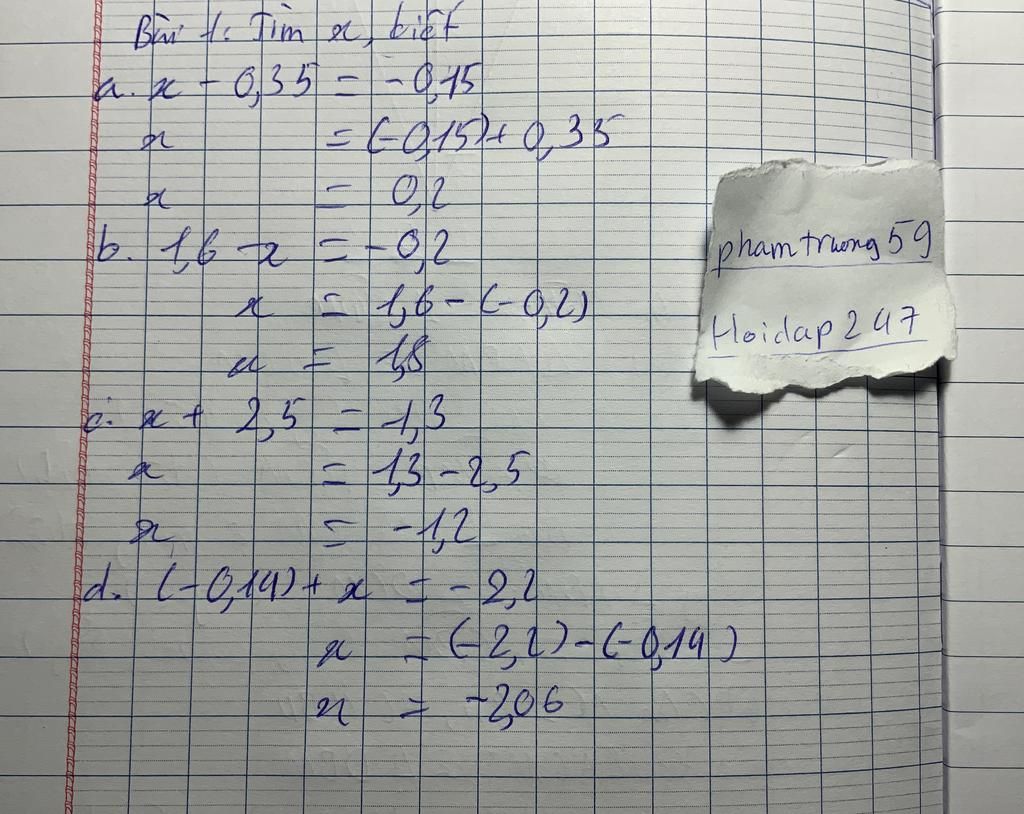 Bài 1: Tìm x, biết
a. x - 0,35 = -0,15
x = (-0,15) + 0,35
x = 0,2
b. 1,6 - x = -0,2
x = 1,6 - (-0,2)
x = 1,8
c. x + 2,5 = 1,3
x = 1,3 - 2,5
x = -1,2
d. (-0,14) + x = -2,2
x = (-2,2) - (-0,14)
x = -2,06
phamtruong59
Hoidap247